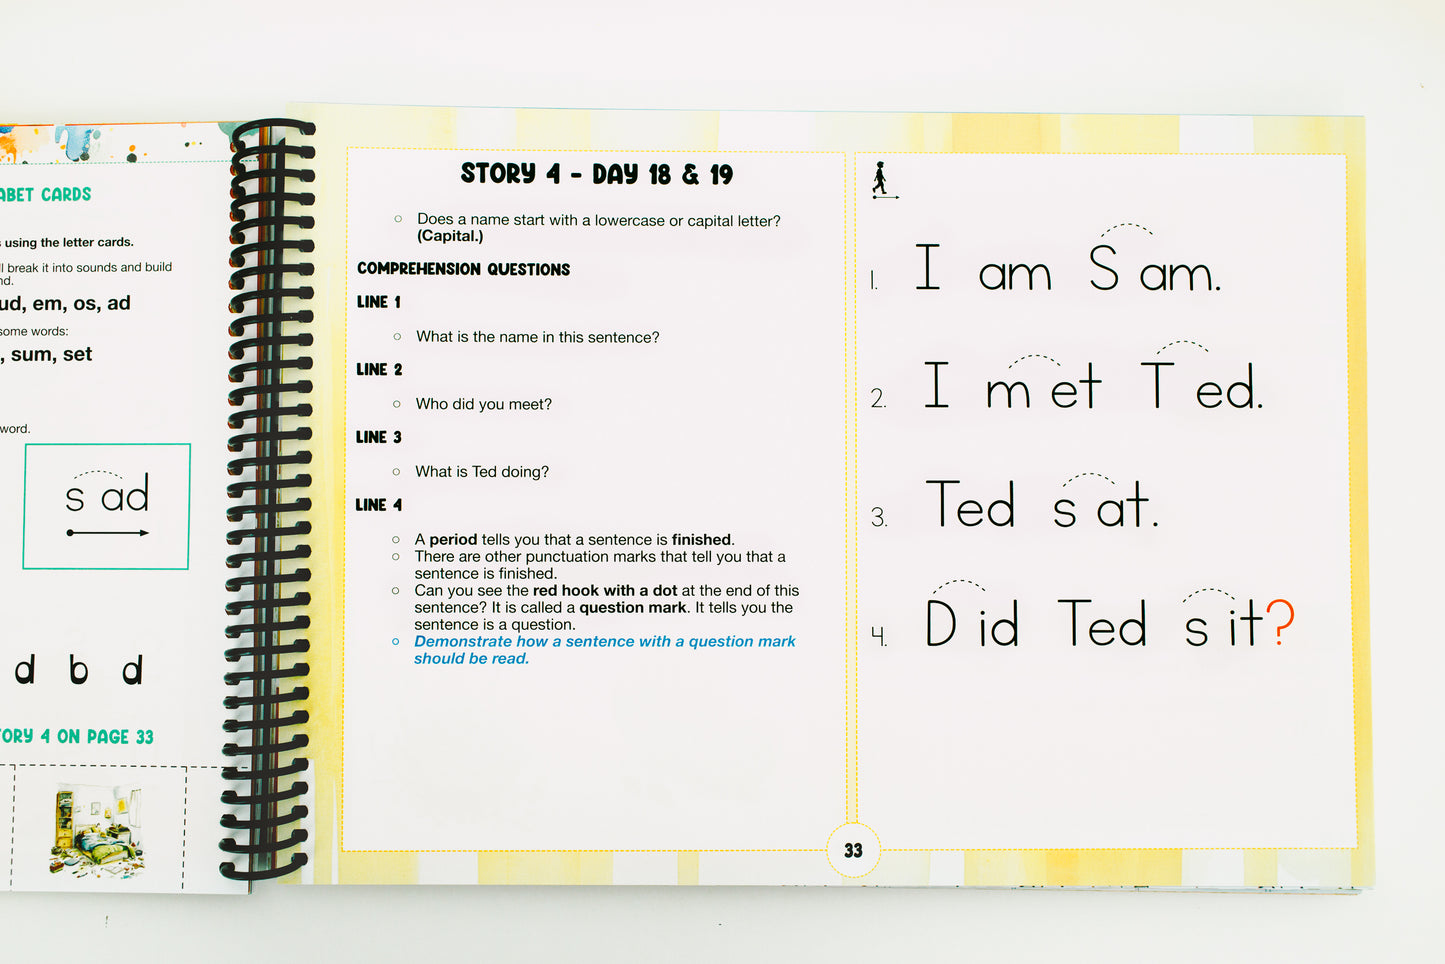 CARDS
using the letter cards.
break it into sounds and build
ud, em, os, ad
some words:
, sum, set
word.
s ad
d b d
4 ON PAGE 33
STORY 4 - DAY 18 & 19
○ Does a name start with a lowercase or capital letter?
(Capital.)
COMPREHENSION QUESTIONS
LINE 1
○ What is the name in this sentence?
LINE 2
○ Who did you meet?
LINE 3
○ What is Ted doing?
LINE 4
○ A period tells you that a sentence is finished.
○ There are other punctuation marks that tell you that a
sentence is finished.
○ Can you see the red hook with a dot at the end of this
sentence? It is called a question mark. It tells you the
sentence is a question.
○ Demonstrate how a sentence with a question mark
should be read.
1. I am S am.
2. I m et T ed.
3. Ted s at.
4. D id Ted s it?
33